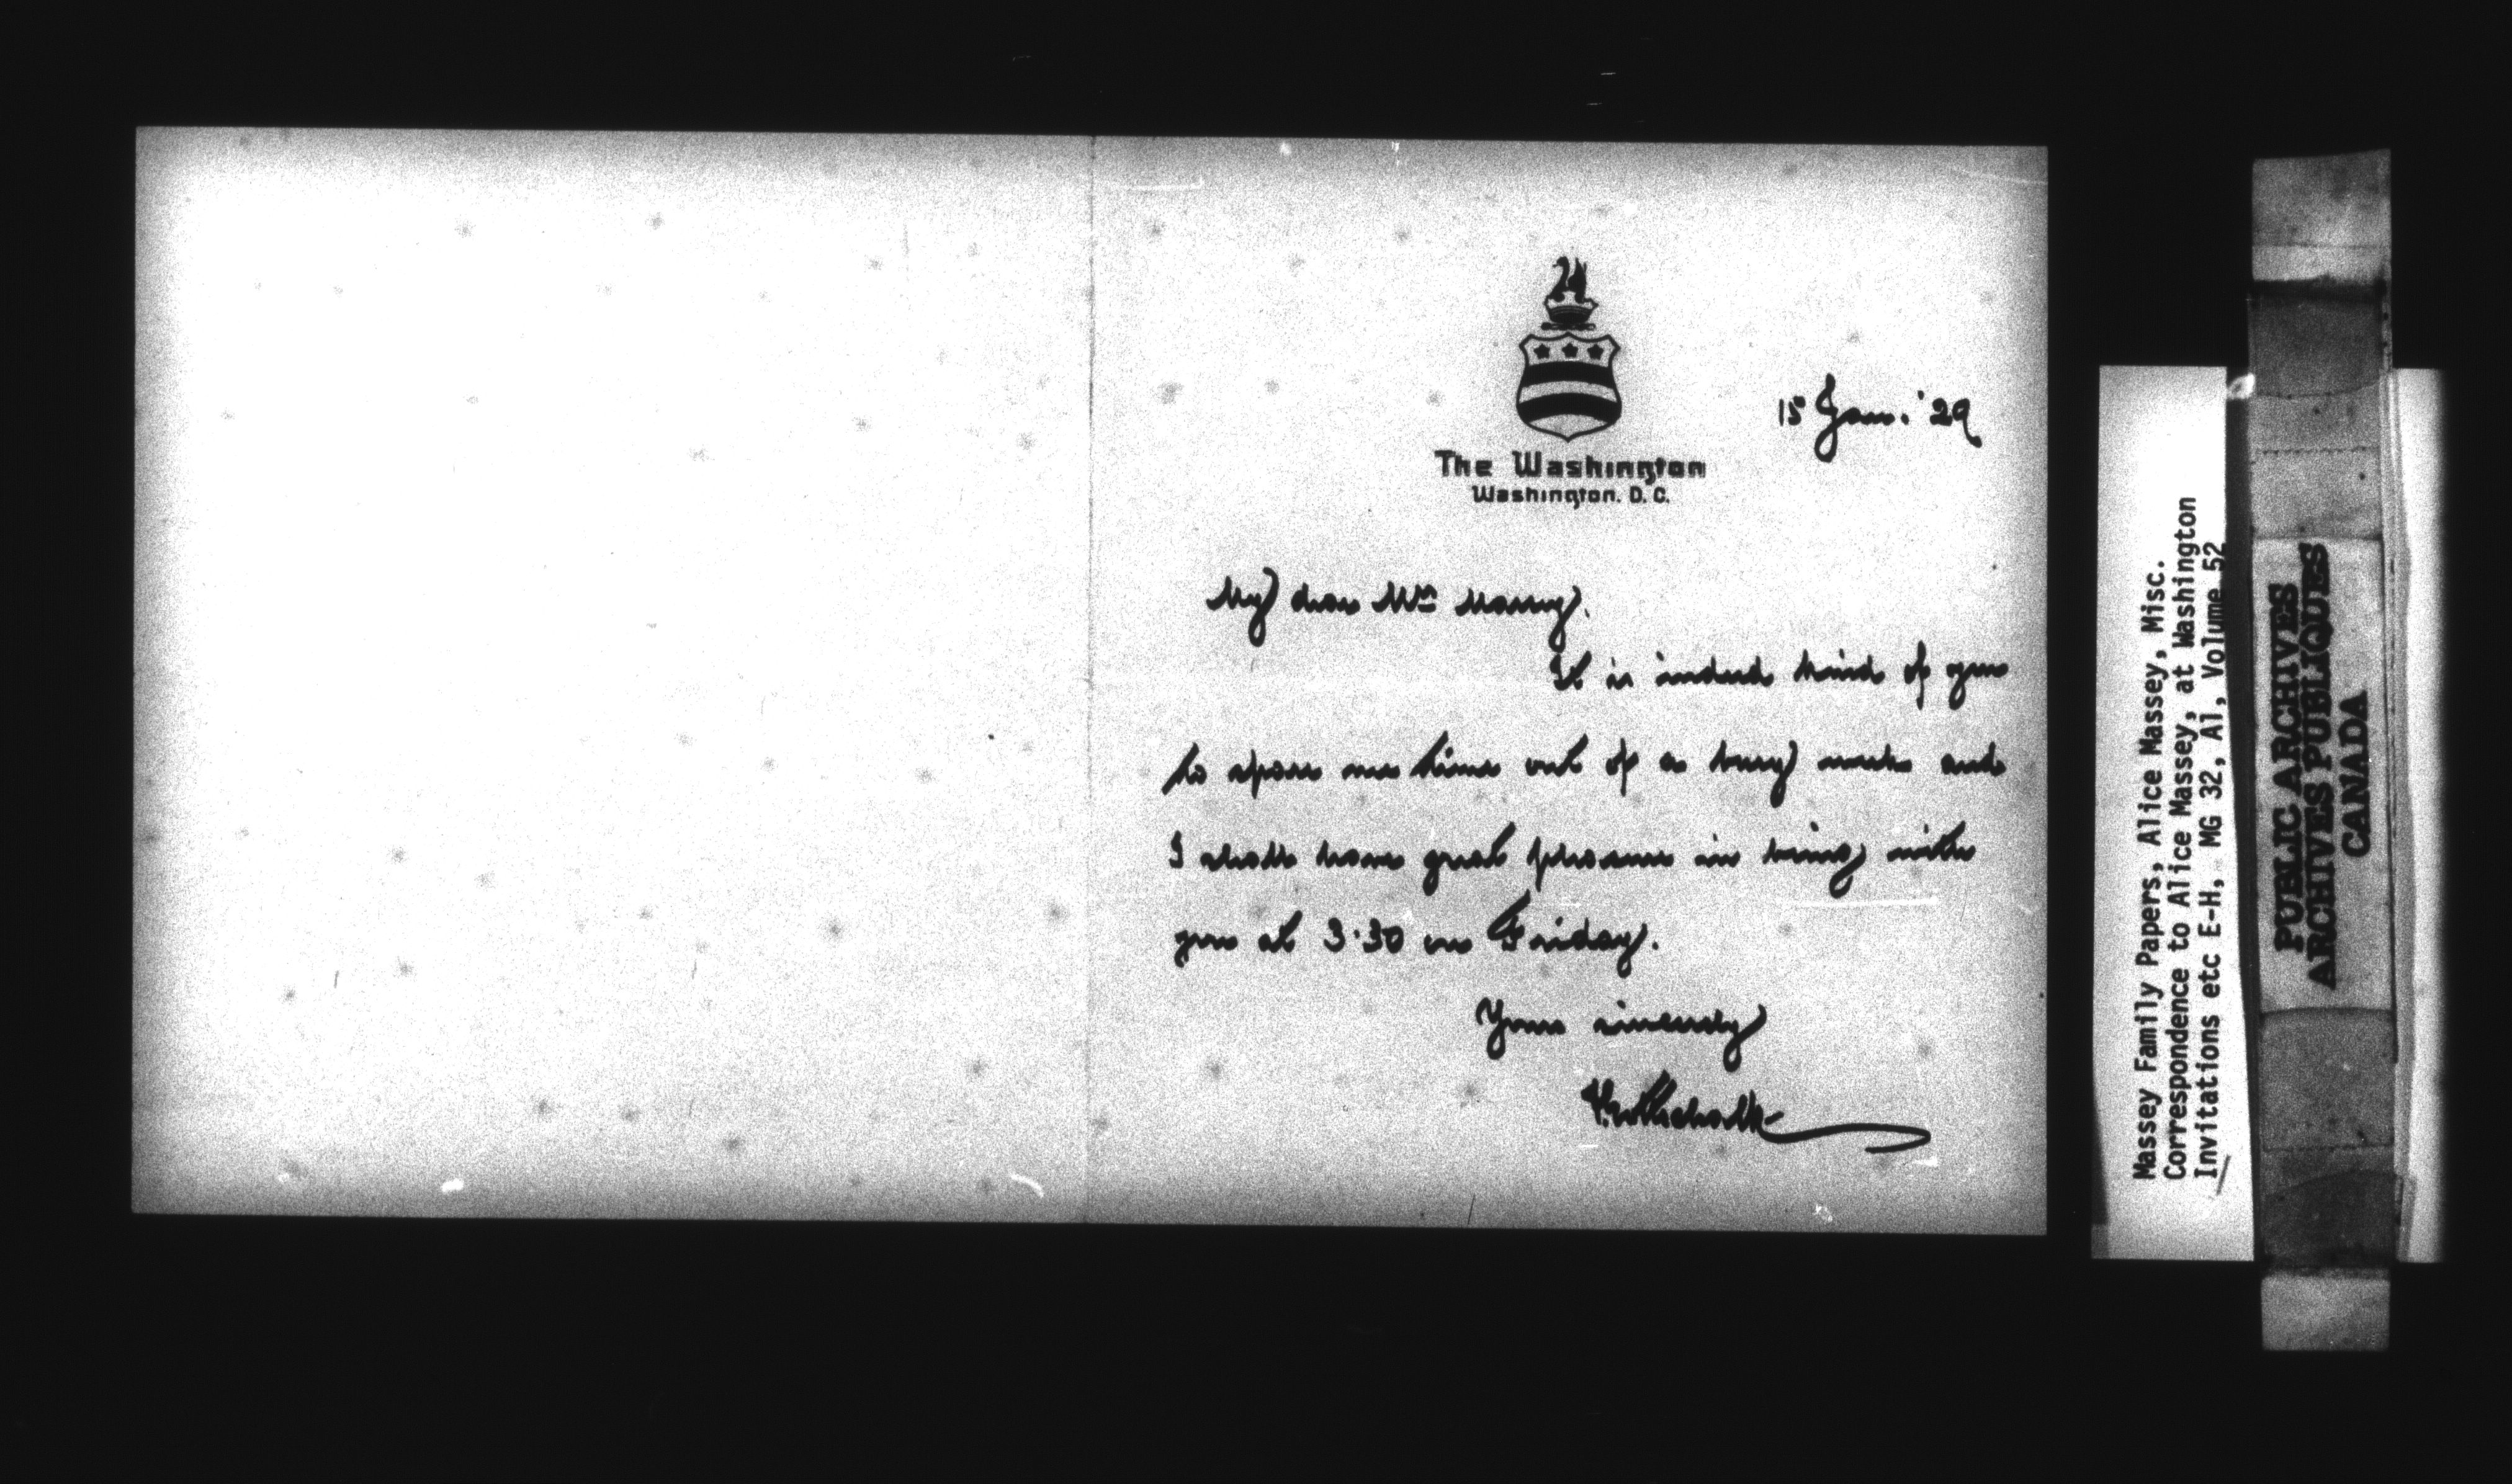 15 Jan. '29
The Washington
Washington. D. C.
My dear Mrs Massey.
It is indeed kind of you
to spare me time out of a busy week and
I shall have great pleasure in being with
you at 3.30 on Friday.
Yours sincerely
Massey Family Papers, Alice Massey, Misc.
Correspondence to Alice Massey, at Washington
Invitations etc E-H, MG 32, A1, Volume 52
PUBLIC ARCHIVES
ARCHIVES PUBLIQUES
CANADA